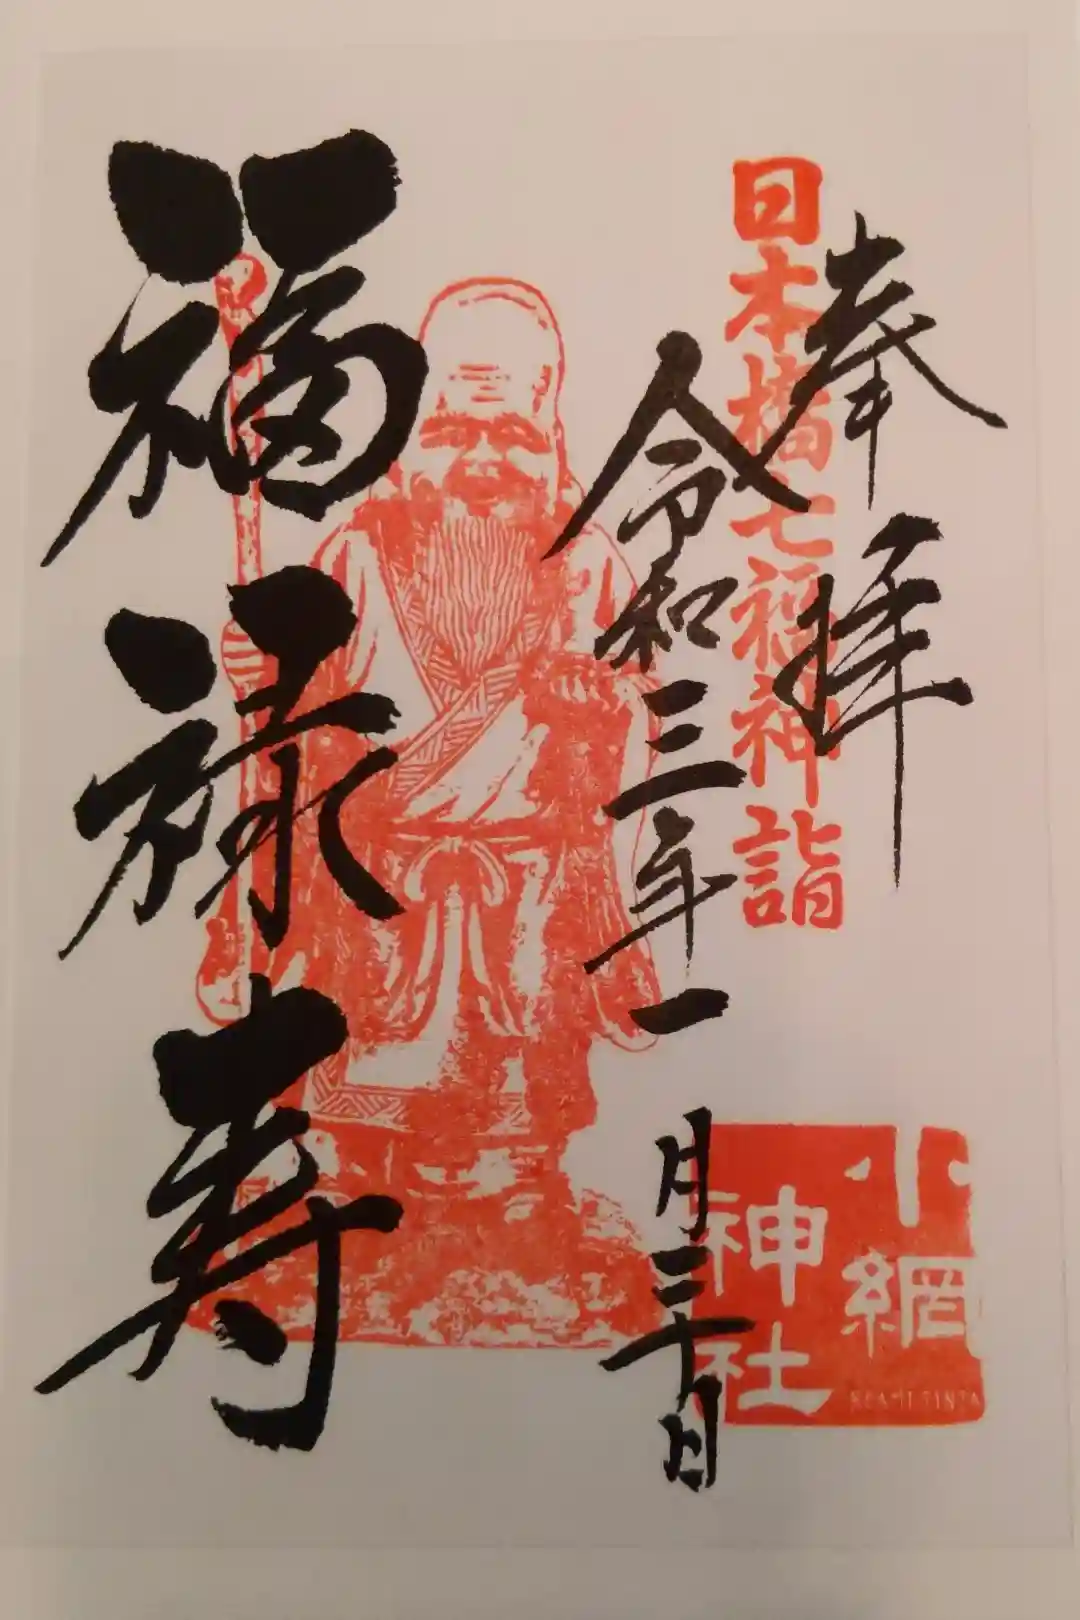 奉拝
日本橋七福神詣
令和三年一月三十日
福禄寿
小網
神社
KOAMI JINJA